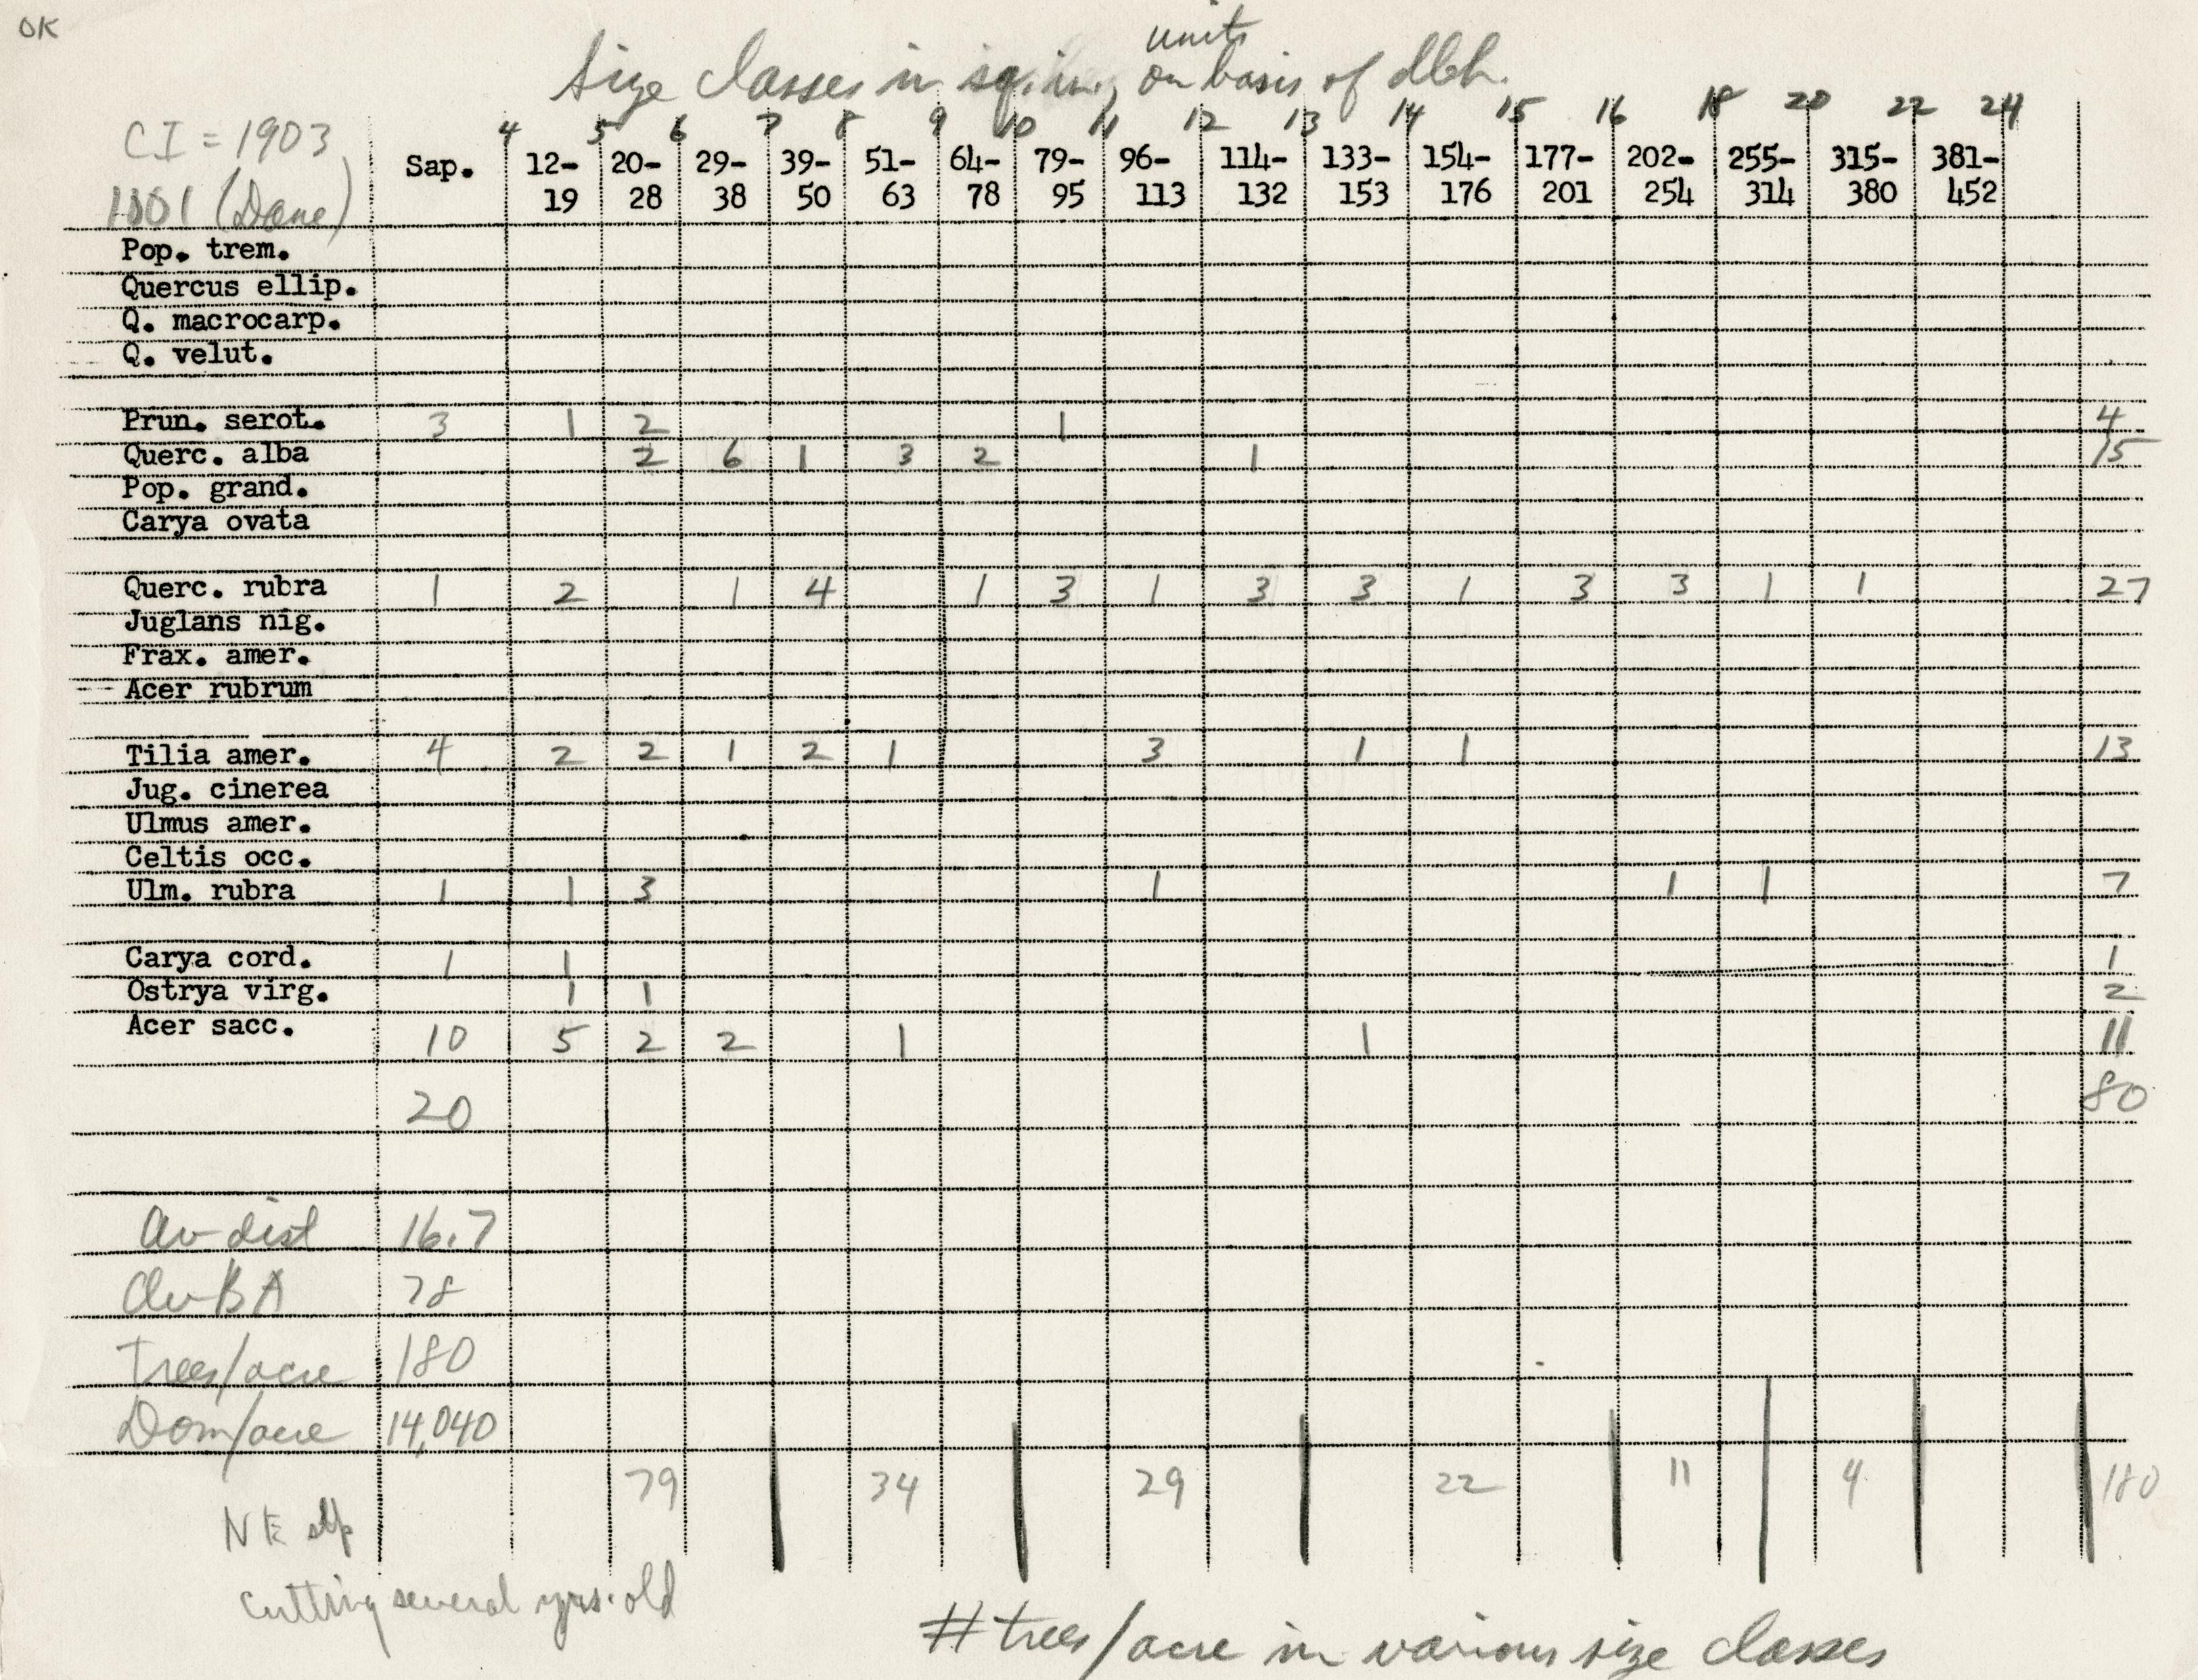 OK
units
Size Classes in sq. in. on basis of dbh.
4 5 6 7 8 9 10 11 12 13 14 15 16 18 20 22 24
CI = 1903
1001 (Dane)
Sap. 12- 20- 29- 39- 51- 64- 79- 96- 114- 133- 154- 177- 202- 255- 315- 381-
19 28 38 50 63 78 95 113 132 153 176 201 254 314 380 452
Pop. trem.
Quercus ellip.
Q. macrocarp.
Q. velut.
Prun. serot. 3 1 2 1 4
Querc. alba 2 6 1 3 2 1 15
Pop. grand.
Carya ovata
Querc. rubra 1 2 1 4 1 3 1 3 3 1 3 3 1 1 27
Juglans nig.
Frax. amer.
Acer rubrum
Tilia amer. 4 2 2 1 2 1 3 1 1 13
Jug. cinerea
Ulmus amer.
Celtis occ.
Ulm. rubra 1 1 3 1 1 1 7
Carya cord. 1 1 1
Ostrya virg. 1 1 2
Acer sacc. 10 5 2 2 1 1 11
20 80
Av dist 16.7
Av BA 78
Trees/acre 180
Dom/acre 14,040
79 34 29 22 11 4 180
NE slp
cutting several yrs. old
# trees/acre in various size classes